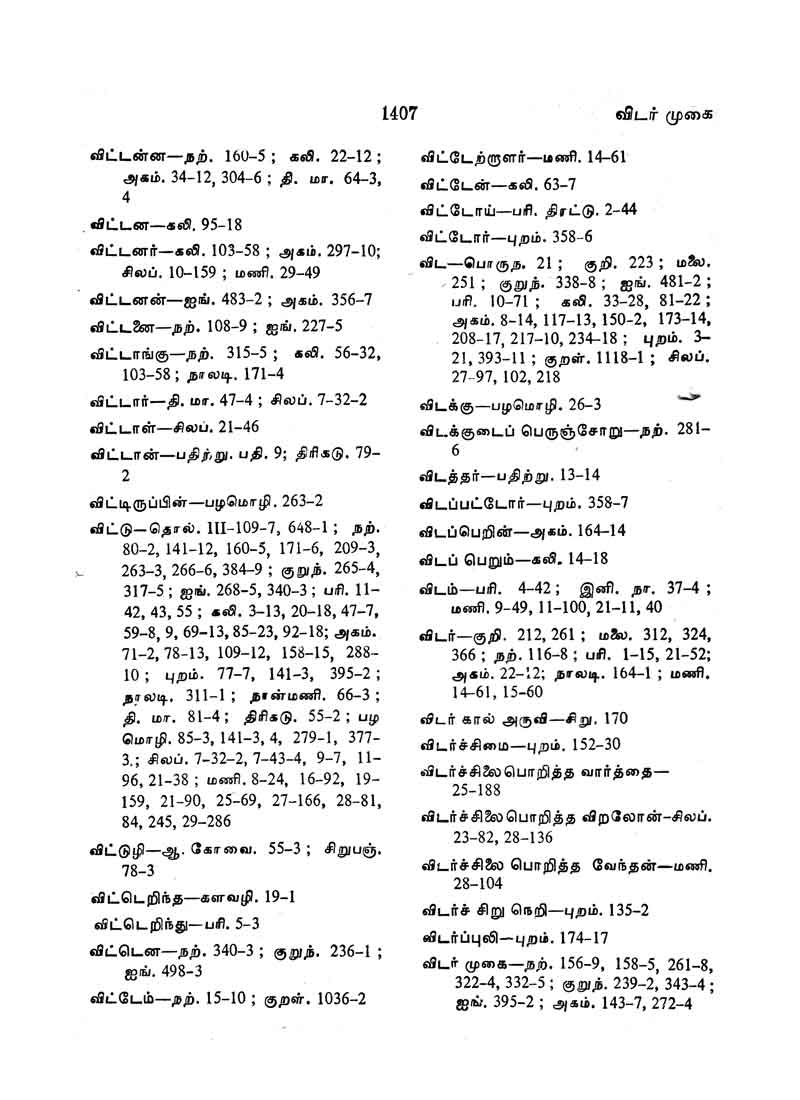 1407
விடர் முகை
விட்டன்ன—நற். 160-5 ; கலி. 22-12 ;
அகம். 34-12, 304-6 ; தி. மா. 64-3,
4
விட்டன—கலி. 95-18
விட்டனர்—கலி. 103-58 ; அகம். 297-10;
சிலப். 10-159 ; மணி. 29-49
விட்டனன்—ஐங். 483-2 ; அகம். 356-7
விட்டனை—நற். 108-9 ; ஐங். 227-5
விட்டாங்கு—நற். 315-5 ; கலி. 56-32,
103-58 ; நாலடி. 171-4
விட்டார்—தி. மா. 47-4 ; சிலப். 7-32-2
விட்டாள்—சிலப். 21-46
விட்டான்—பதிற்று. பதி. 9; திரிகடு. 79-
2
விட்டிருப்பின்—பழமொழி. 263-2
விட்டு—தொல். III-109-7, 648-1 ; நற்.
80-2, 141-12, 160-5, 171-6, 209-3,
263-3, 266-6, 384-9 ; குறுந். 265-4,
317-5 ; ஐங். 268-5, 340-3 ; பரி. 11-
42, 43, 55 ; கலி. 3-13, 20-18, 47-7,
59-8, 9, 69-13, 85-23, 92-18; அகம்.
71-2, 78-13, 109-12, 158-15, 288-
10 ; புறம். 77-7, 141-3, 395-2 ;
நாலடி. 311-1 ; நான்மணி. 66-3 ;
தி. மா. 81-4 ; திரிகடு. 55-2 ; பழ
மொழி. 85-3, 141-3, 4, 279-1, 377-
3.; சிலப். 7-32-2, 7-43-4, 9-7, 11-
96, 21-38 ; மணி. 8-24, 16-92, 19-
159, 21-90, 25-69, 27-166, 28-81,
84, 245, 29-286
விட்டுழி—ஆ. கோவை. 55-3 ; சிறுபஞ்.
78-3
விட்டெறிந்த—களவழி. 19-1
விட்டெறிந்து—பரி. 5-3
விட்டென—நற். 340-3 ; குறுந். 236-1 ;
ஐங். 498-3
விட்டேம்—நற். 15-10 ; குறள். 1036-2
விட்டேற்றாளர்—மணி. 14-61
விட்டேன்—கலி. 63-7
விட்டோய்—பரி. திரட்டு. 2-44
விட்டோர்—புறம். 358-6
விட—பொருந. 21 ; குறி. 223 ; மலை.
251 ; குறுந். 338-8 ; ஐங். 481-2 ;
பரி. 10-71 ; கலி. 33-28, 81-22 ;
அகம். 8-14, 117-13, 150-2, 173-14,
208-17, 217-10, 234-18 ; புறம். 3-
21, 393-11 ; குறள். 1118-1 ; சிலப்.
27-97, 102, 218
விடக்கு—பழமொழி. 26-3
விடக்குடைப் பெருஞ்சோறு—நற். 281-
6
விடத்தர்—பதிற்று. 13-14
விடப்பட்டோர்—புறம். 358-7
விடப்பெறின்—அகம். 164-14
விடப் பெறும்—கலி. 14-18
விடம்—பரி. 4-42 ; இனி. நா. 37-4 ;
மணி. 9-49, 11-100, 21-11, 40
விடர்—குறி. 212, 261 ; மலை. 312, 324,
366 ; நற். 116-8 ; பரி. 1-15, 21-52;
அகம். 22-12; நாலடி. 164-1 ; மணி.
14-61, 15-60
விடர் கால் அருவி—சிறு. 170
விடர்ச்சிமை—புறம். 152-30
விடர்ச்சிலைபொறித்த வார்த்தை—
25-188
விடர்ச்சிலைபொறித்த விறலோன்-சிலப்.
23-82, 28-136
விடர்ச்சிலை பொறித்த வேந்தன்—மணி.
28-104
விடர்ச் சிறு நெறி—புறம். 135-2
விடர்ப்புலி—புறம். 174-17
விடர் முகை—நற். 156-9, 158-5, 261-8,
322-4, 332-5 ; குறுந். 239-2, 343-4 ;
ஐங். 395-2 ; அகம். 143-7, 272-4